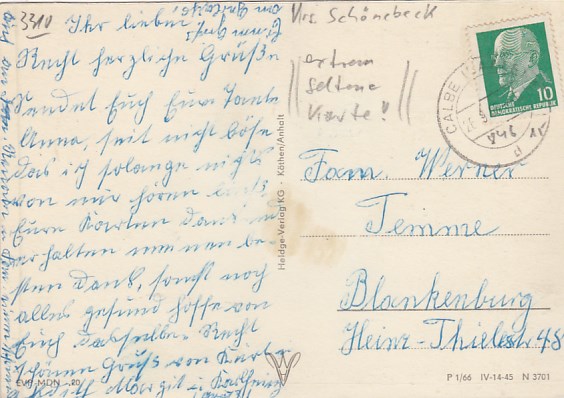 3310
Ihr lieben!
Recht herzliche Grüße
sendet Euch Eure Tante
Anna, seit nicht böse
das ich solange nichts
von mir hören
Eure Karten dankend
erhalten meinen be-
sten Dank, sonst noch
alles gesund hoffe von
Euch dasselbe. Recht
schönen Gruß von Kurt
Margit u.
EVP MDN -.20
Heldge-Verlag KG · Köthen/Anhalt
Krs. Schönebeck
extrem
seltene
Karte!
CALBE
10
DEUTSCHE
DEMOKRATISCHE REPUBLIK
Fam. Werner
Temme
Blankenburg
Heinr-Thielestr 48
P 1/66 IV-14-45 N 3701